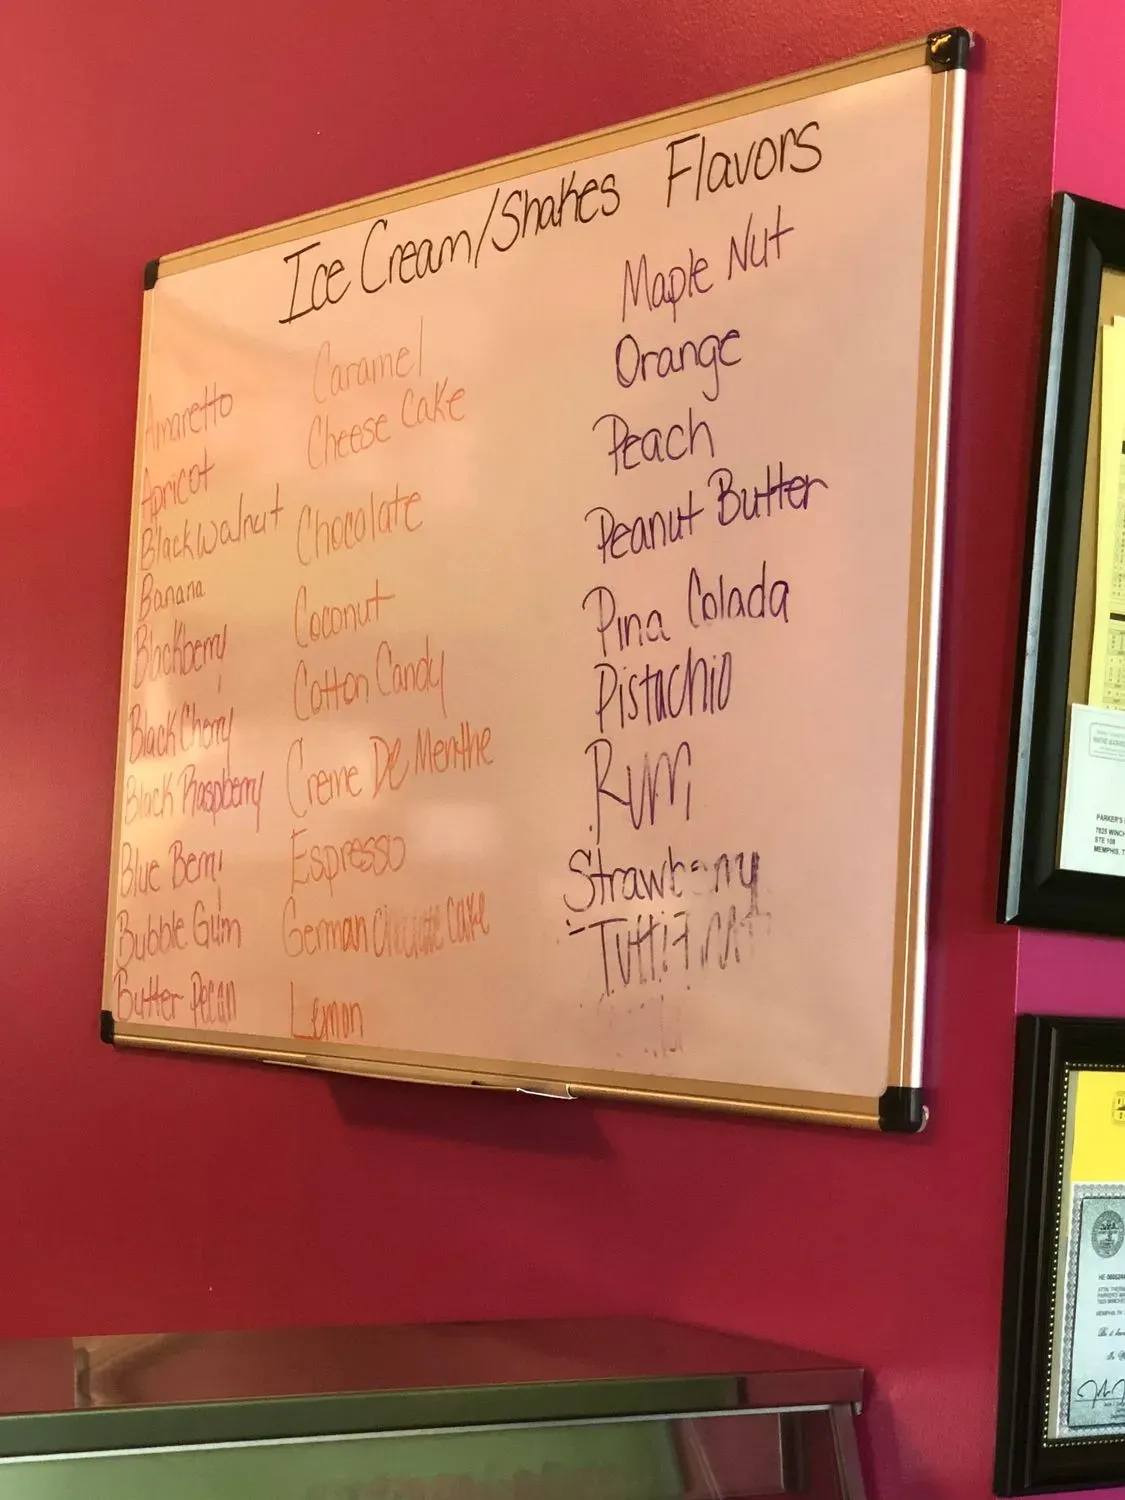 Ice Cream/Shakes Flavors
Amaretto
Apricot
Black Walnut
Banana
Blackberry
Black Cherry
Black Raspberry
Blue Berry
Bubble Gum
Butter Pecan
Caramel
Cheese Cake
Chocolate
Coconut
Cotton Candy
Creme De Menthe
Espresso
German Chocolate Cake
Lemon
Maple Nut
Orange
Peach
Peanut Butter
Pina Colada
Pistachio
Rum
Strawberry
Tutti Frutti
PARKER'S
7825 WINCH
STE 108
MEMPHIS, T